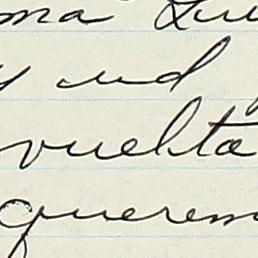 ma Lu
y ud
vuelta
querem